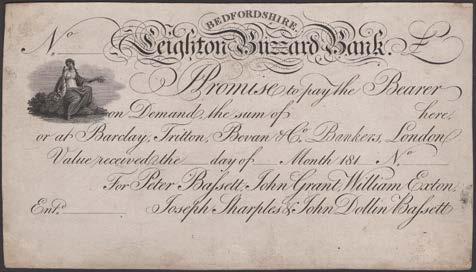 BEDFORDSHIRE.
No Leighton Buzzard Bank. £
I Promise to pay the Bearer
on Demand the sum of here,
or at Barclay, Tritton, Bevan & Co. Bankers, London
Value received the day of Month 181 No
For Peter Bassett, John Grant, William Exton,
Entd. Joseph Sharples & John Dollin Bassett